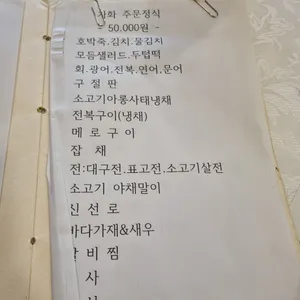 사화 주문정식
- 50.000원 -
호박죽.김치.물김치
모듬샐러드.두텁떡
회.광어.전복.연어.문어
구 절 판
소고기아롱사태냉채
전복구이(냉채)
메 로 구 이
잡 채
전:대구전.표고전.소고기살전
소고기 야채말이
신 선 로
바다가재&새우
갈 비 찜
사